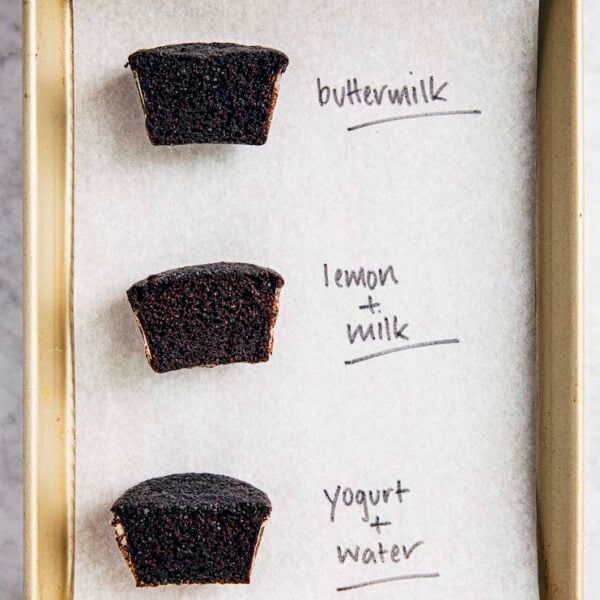 buttermilk
lemon
+
milk
yogurt
+
water